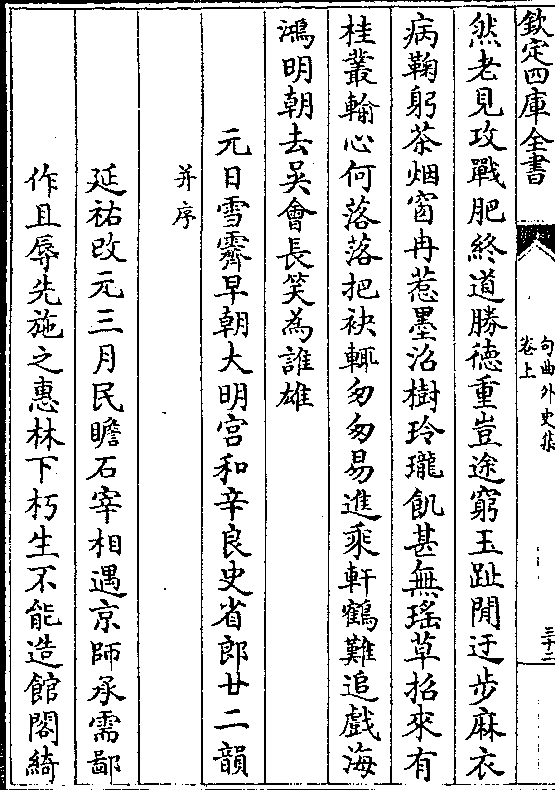 欽定四庫全書
句曲外史集
卷上
三十二
然老見攻戰肥終道勝徳重豈途窮玉趾閒迂步麻衣
病鞠躬茶烟窗冉惹墨沼樹玲瓏飢甚無瑤草招來有
桂叢輸心何落落把袂輒匆匆易進乘軒鶴難追戲海
鴻明朝去吳會長笑為誰雄
元日雪霽早朝大明宫和辛良史省郎廿二韻
并序
延祐改元三月民瞻石宰相遇京師承需鄙
作且辱先施之惠林下朽生不能造館閣綺